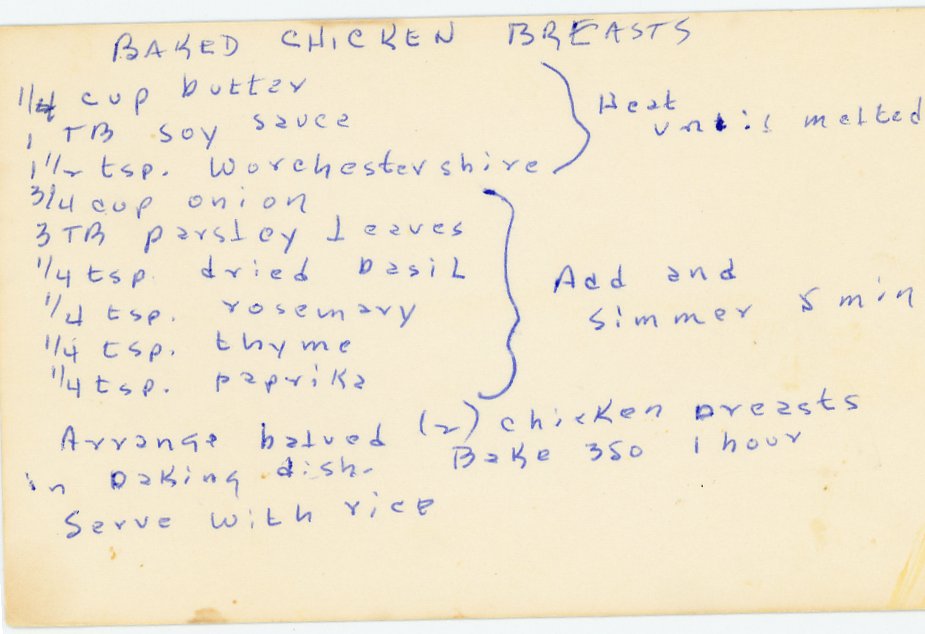 BAKED CHICKEN BREASTS
1/4 cup butter
1 TB soy sauce
1 1/2 tsp. Worchestershire
Heat
until melted
3/4 cup onion
3 TB parsley leaves
1/4 tsp. dried basil
1/4 tsp. rosemary
1/4 tsp. thyme
1/4 tsp. paprika
Add and
simmer 5 min
Arrange halved (2) chicken breasts
in baking dish. Bake 350 1 hour
Serve with rice